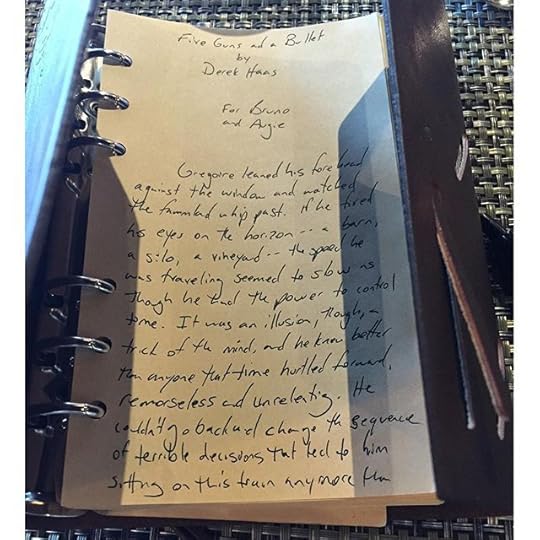 Five Guns and a Bullet
by
Derek Haas
For Bruno
and Augie
Gregoire leaned his forehead
against the window and watched
the farmland whip past. If he fixed
his eyes on the horizon -- a barn,
a silo, a vineyard -- the speed he
was traveling seemed to slow as
though he had the power to control
time. It was an illusion, though, a
trick of the mind, and he knew better
than anyone that time hurtled forward,
remorseless and unrelenting. He
couldn't go back and change the sequence
of terrible decisions that led to him
sitting on this train anymore than